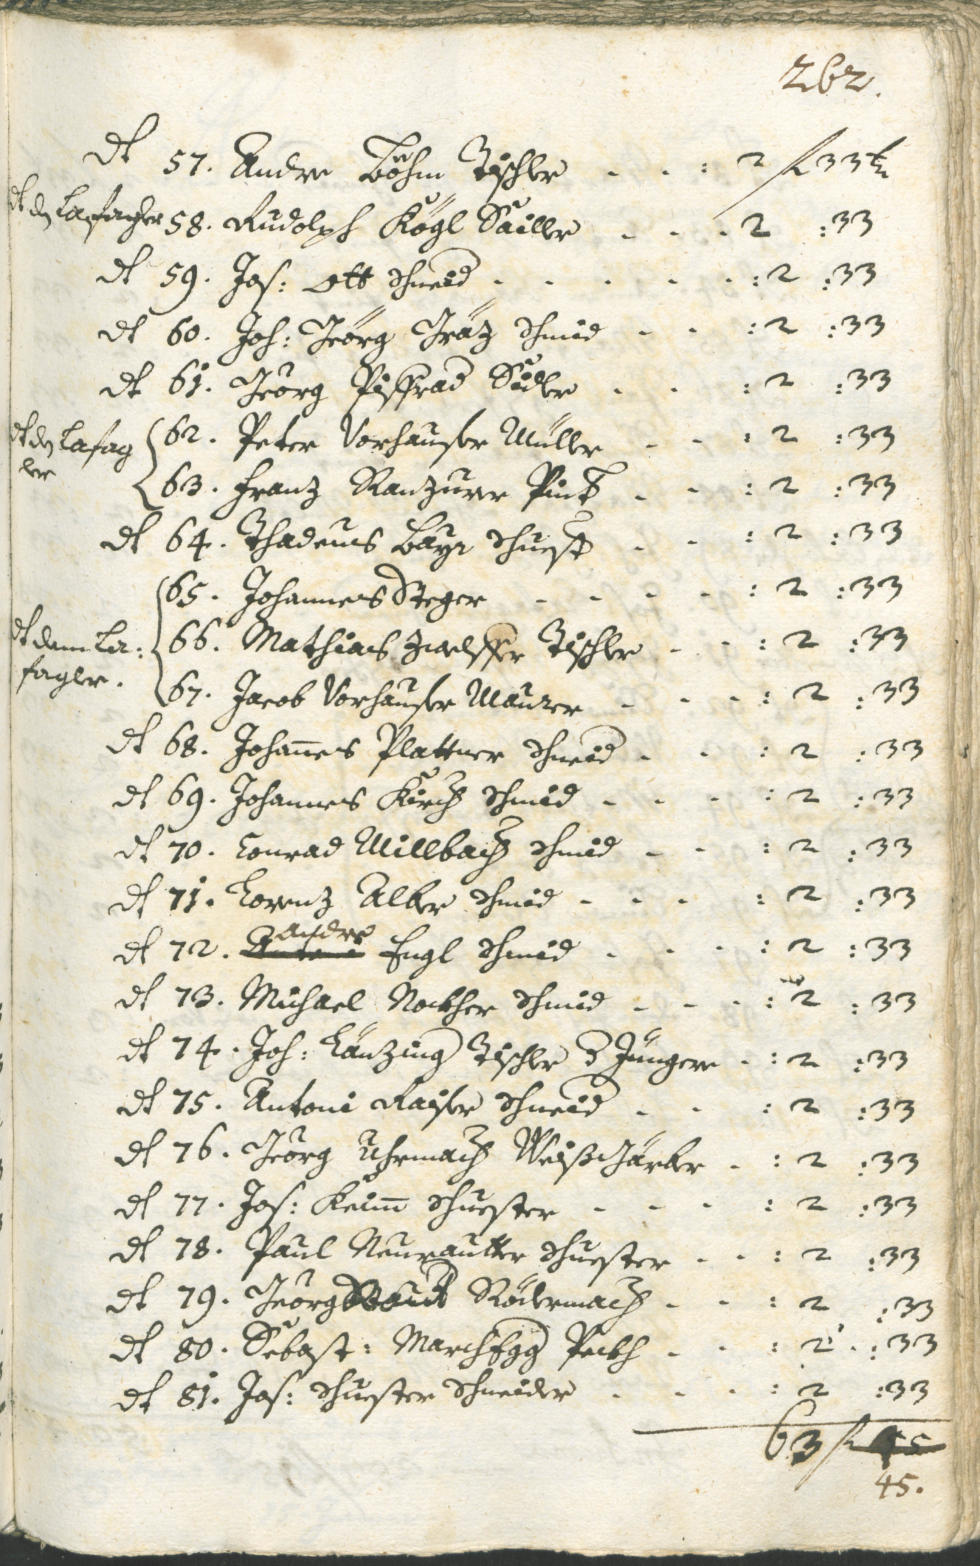 262.
dt 57. Andre Böhm Tischler - - : 2 f 33 x
58. Rudolph Kögl Sailler - - - 2 : 33
dt 59. Jos: Ott Schneid - - - - - : 2 : 33
dt 60. Joh: Jeörg Grätz Schmid - - : 2 : 33
dt 61. Jeörg Pissrad Sidler - - : 2 : 33
dt des Lafag
ler
62. Peter Vorhauser Müller - - : 2 : 33
63. Franz Ranzurer Pint - - : 2 : 33
dt 64. Thadeus Bayr Schuest - - : 2 : 33
65. Johannes Steger - - - - : 2 : 33
dt dem La:
fagler.
66. Mathias Tischler - - : 2 : 33
67. Jacob Vorhauser Maurer - - - : 2 : 33
dt 68. Johannes Plattner Schneid - - : 2 : 33
dt 69. Johannes Kirch Schmid - - - : 2 : 33
dt 70. Conrad Millbach Schmid - - : 2 : 33
dt 71. Lorenz Alber Schmid - - - : 2 : 33
dt 72. Andre Engl Schmid - - - : 2 : 33
dt 73. Michael Nockher Schmid - - - : 2 : 33
dt 74. Joh: Länzing Tischler d Jüngere - : 2 : 33
dt 75. Antoni Kaiser Schneid - - : 2 : 33
dt 76. Jeörg Uhrmach Weißgärber - : 2 : 33
dt 77. Jos: Keim Schuester - - - : 2 : 33
dt 78. Paul Neurautter Schuester - - : 2 : 33
dt 79. Jeörg Rödermach - - : 2 : 33
dt 80. Sebast: Marchegg Peckh - - : 2 : 33
dt 81. Jos: Schuester Schneider - - - : 2 : 33
63 f
45.